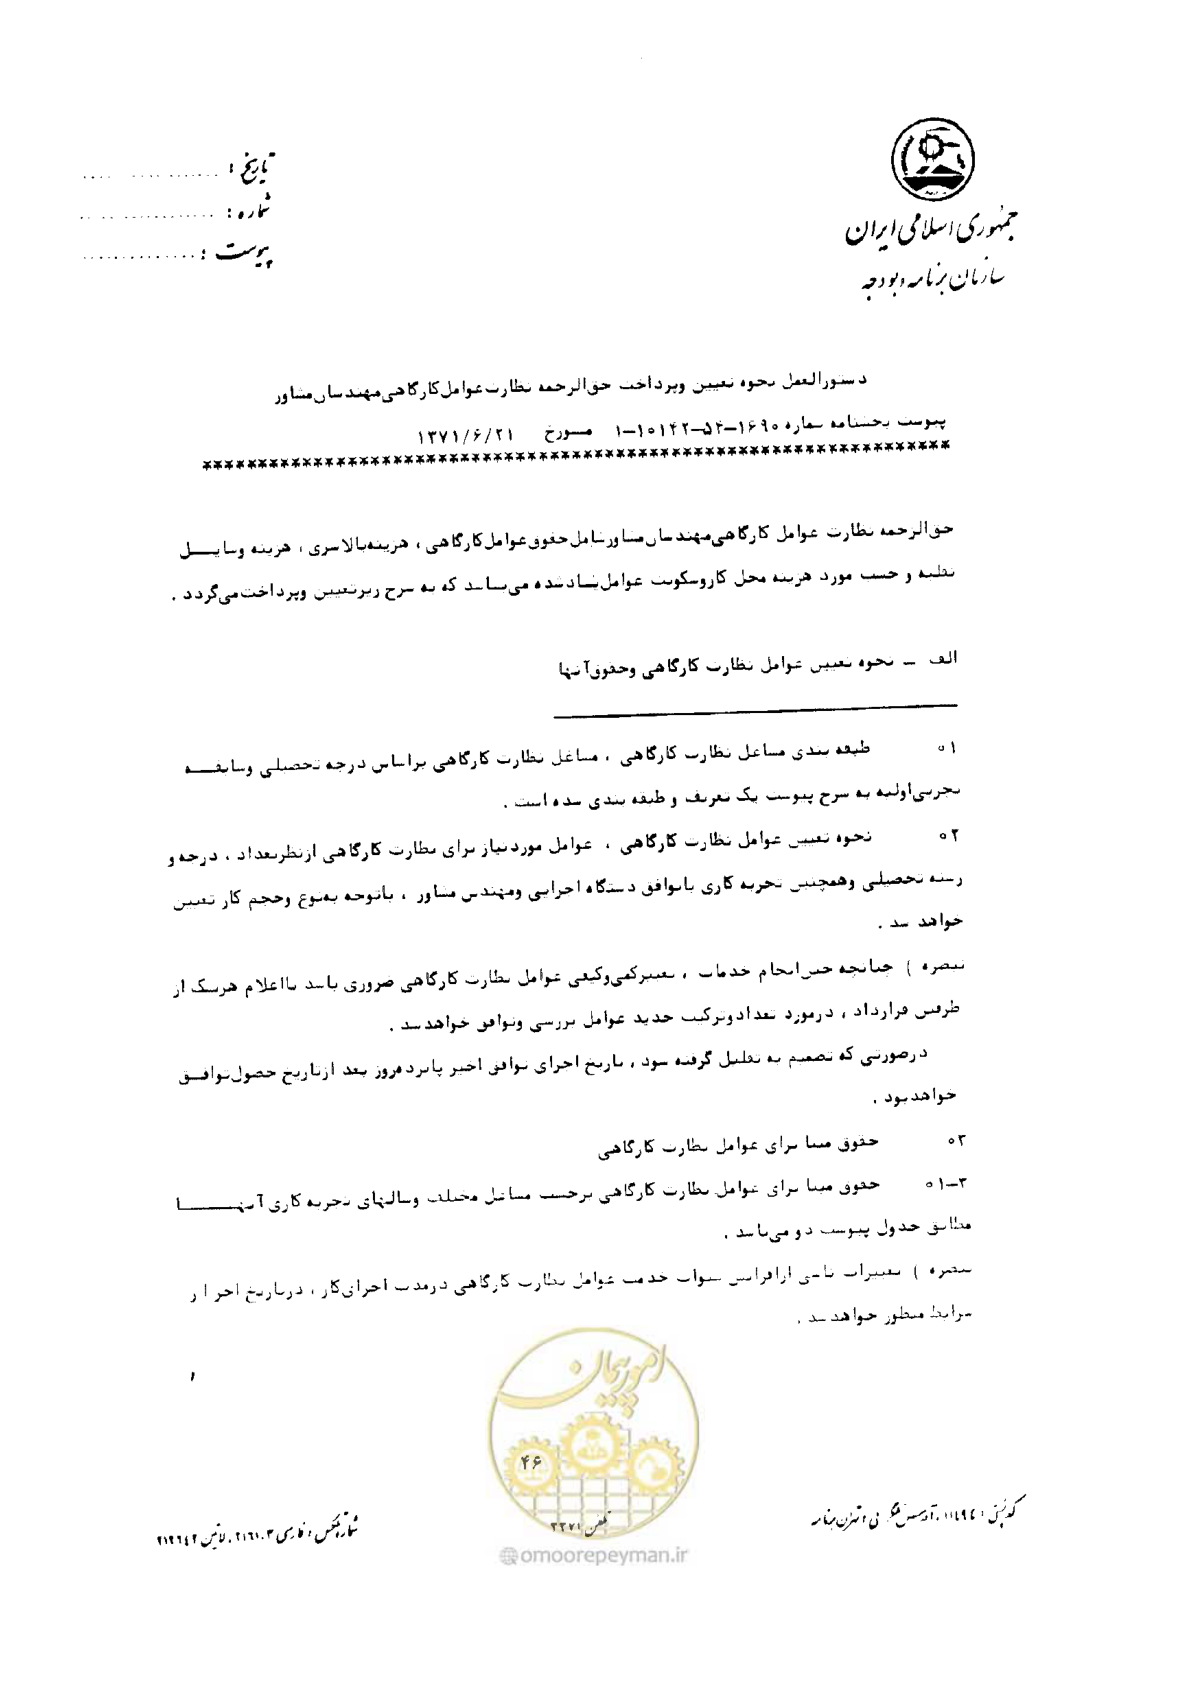 جمهوری اسلامی ایران
سازمان برنامه و بودجه
تاریخ :
شماره :
پیوست :
دستورالعمل نحوه تعیین وپرداخت حق‌الزحمه نظارت عوامل کارگاهی مهندسان مشاور
پیوست بخشنامه شماره ۱۶۹۰-۵۴-۱۰۱۴۲-۱ مورخ ۱۳۷۱/۶/۲۱
حق‌الزحمه نظارت عوامل کارگاهی مهندسان مشاور شامل حقوق عوامل کارگاهی ، هزینه بالاسری ، هزینه وسایل
نقلیه و حسب مورد هزینه محل کار وسکونت عوامل یاد شده می‌باشد که به شرح زیر تعیین وپرداخت می‌گردد .
الف - نحوه تعیین عوامل نظارت کارگاهی وحقوق آنها
۰۱ طبقه بندی مشاغل نظارت کارگاهی ، مشاغل نظارت کارگاهی براساس درجه تحصیلی وسابقه
تجربی اولیه به شرح پیوست یک تعریف و طبقه بندی شده است .
۰۲ نحوه تعیین عوامل نظارت کارگاهی ، عوامل موردنیاز برای نظارت کارگاهی ازنظر تعداد ، درجه و
رشته تحصیلی وهمچنین تجربه کاری باتوافق دستگاه اجرایی ومهندس مشاور ، باتوجه به‌نوع وحجم کار تعیین
خواهد شد .
تبصره ) چنانچه حین انجام خدمات ، تغییر کمی وکیفی عوامل نظارت کارگاهی ضروری باشد بااعلام هریک از
طرفین قرارداد ، درمورد تعداد وترکیب جدید عوامل بررسی وتوافق خواهد شد .
درصورتی که تصمیم به تقلیل گرفته شود ، تاریخ اجرای توافق اخیر پانزده روز بعد ازتاریخ حصول توافق
خواهد بود .
۰۳ حقوق مبنا برای عوامل نظارت کارگاهی
۰۱-۳ حقوق مبنا برای عوامل نظارت کارگاهی برحسب مشاغل مختلف وسالهای تجربه کاری آنها
مطابق جدول پیوست دو می‌باشد .
تبصره ) تغییرات ناشی ازافزایش سنوات خدمت عوامل نظارت کارگاهی درمدت اجرای کار ، درتاریخ احراز
شرایط منظور خواهد شد .
۱
امور پیمان
۴۶
تلفن ۳۳۷۱
@omoorepeyman.ir